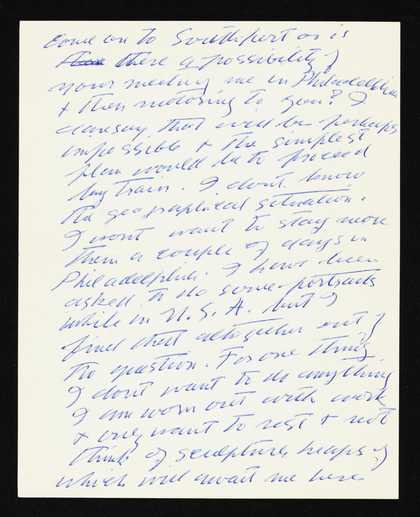 come on to Southport or is
there a possibility of
your meeting me in Philadelphia
& then motoring to you? I
daresay that would be perhaps
impossible & the simplest
plan would be to proceed
by train. I don't know
the geographical situation.
I wont want to stay more
than a couple of days in
Philadelphia. I have been
asked to do some portraits
while in U.S.A. but I
find that altogether out of
the question. For one thing
I don't want to do anything
I am worn out with work
& only want to rest & not
think of sculpture, heaps of
which will await me here